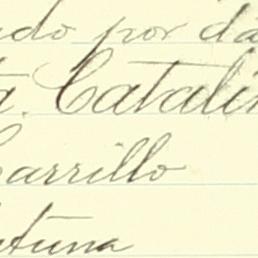 do por
Catalin
Carrillo
tuna